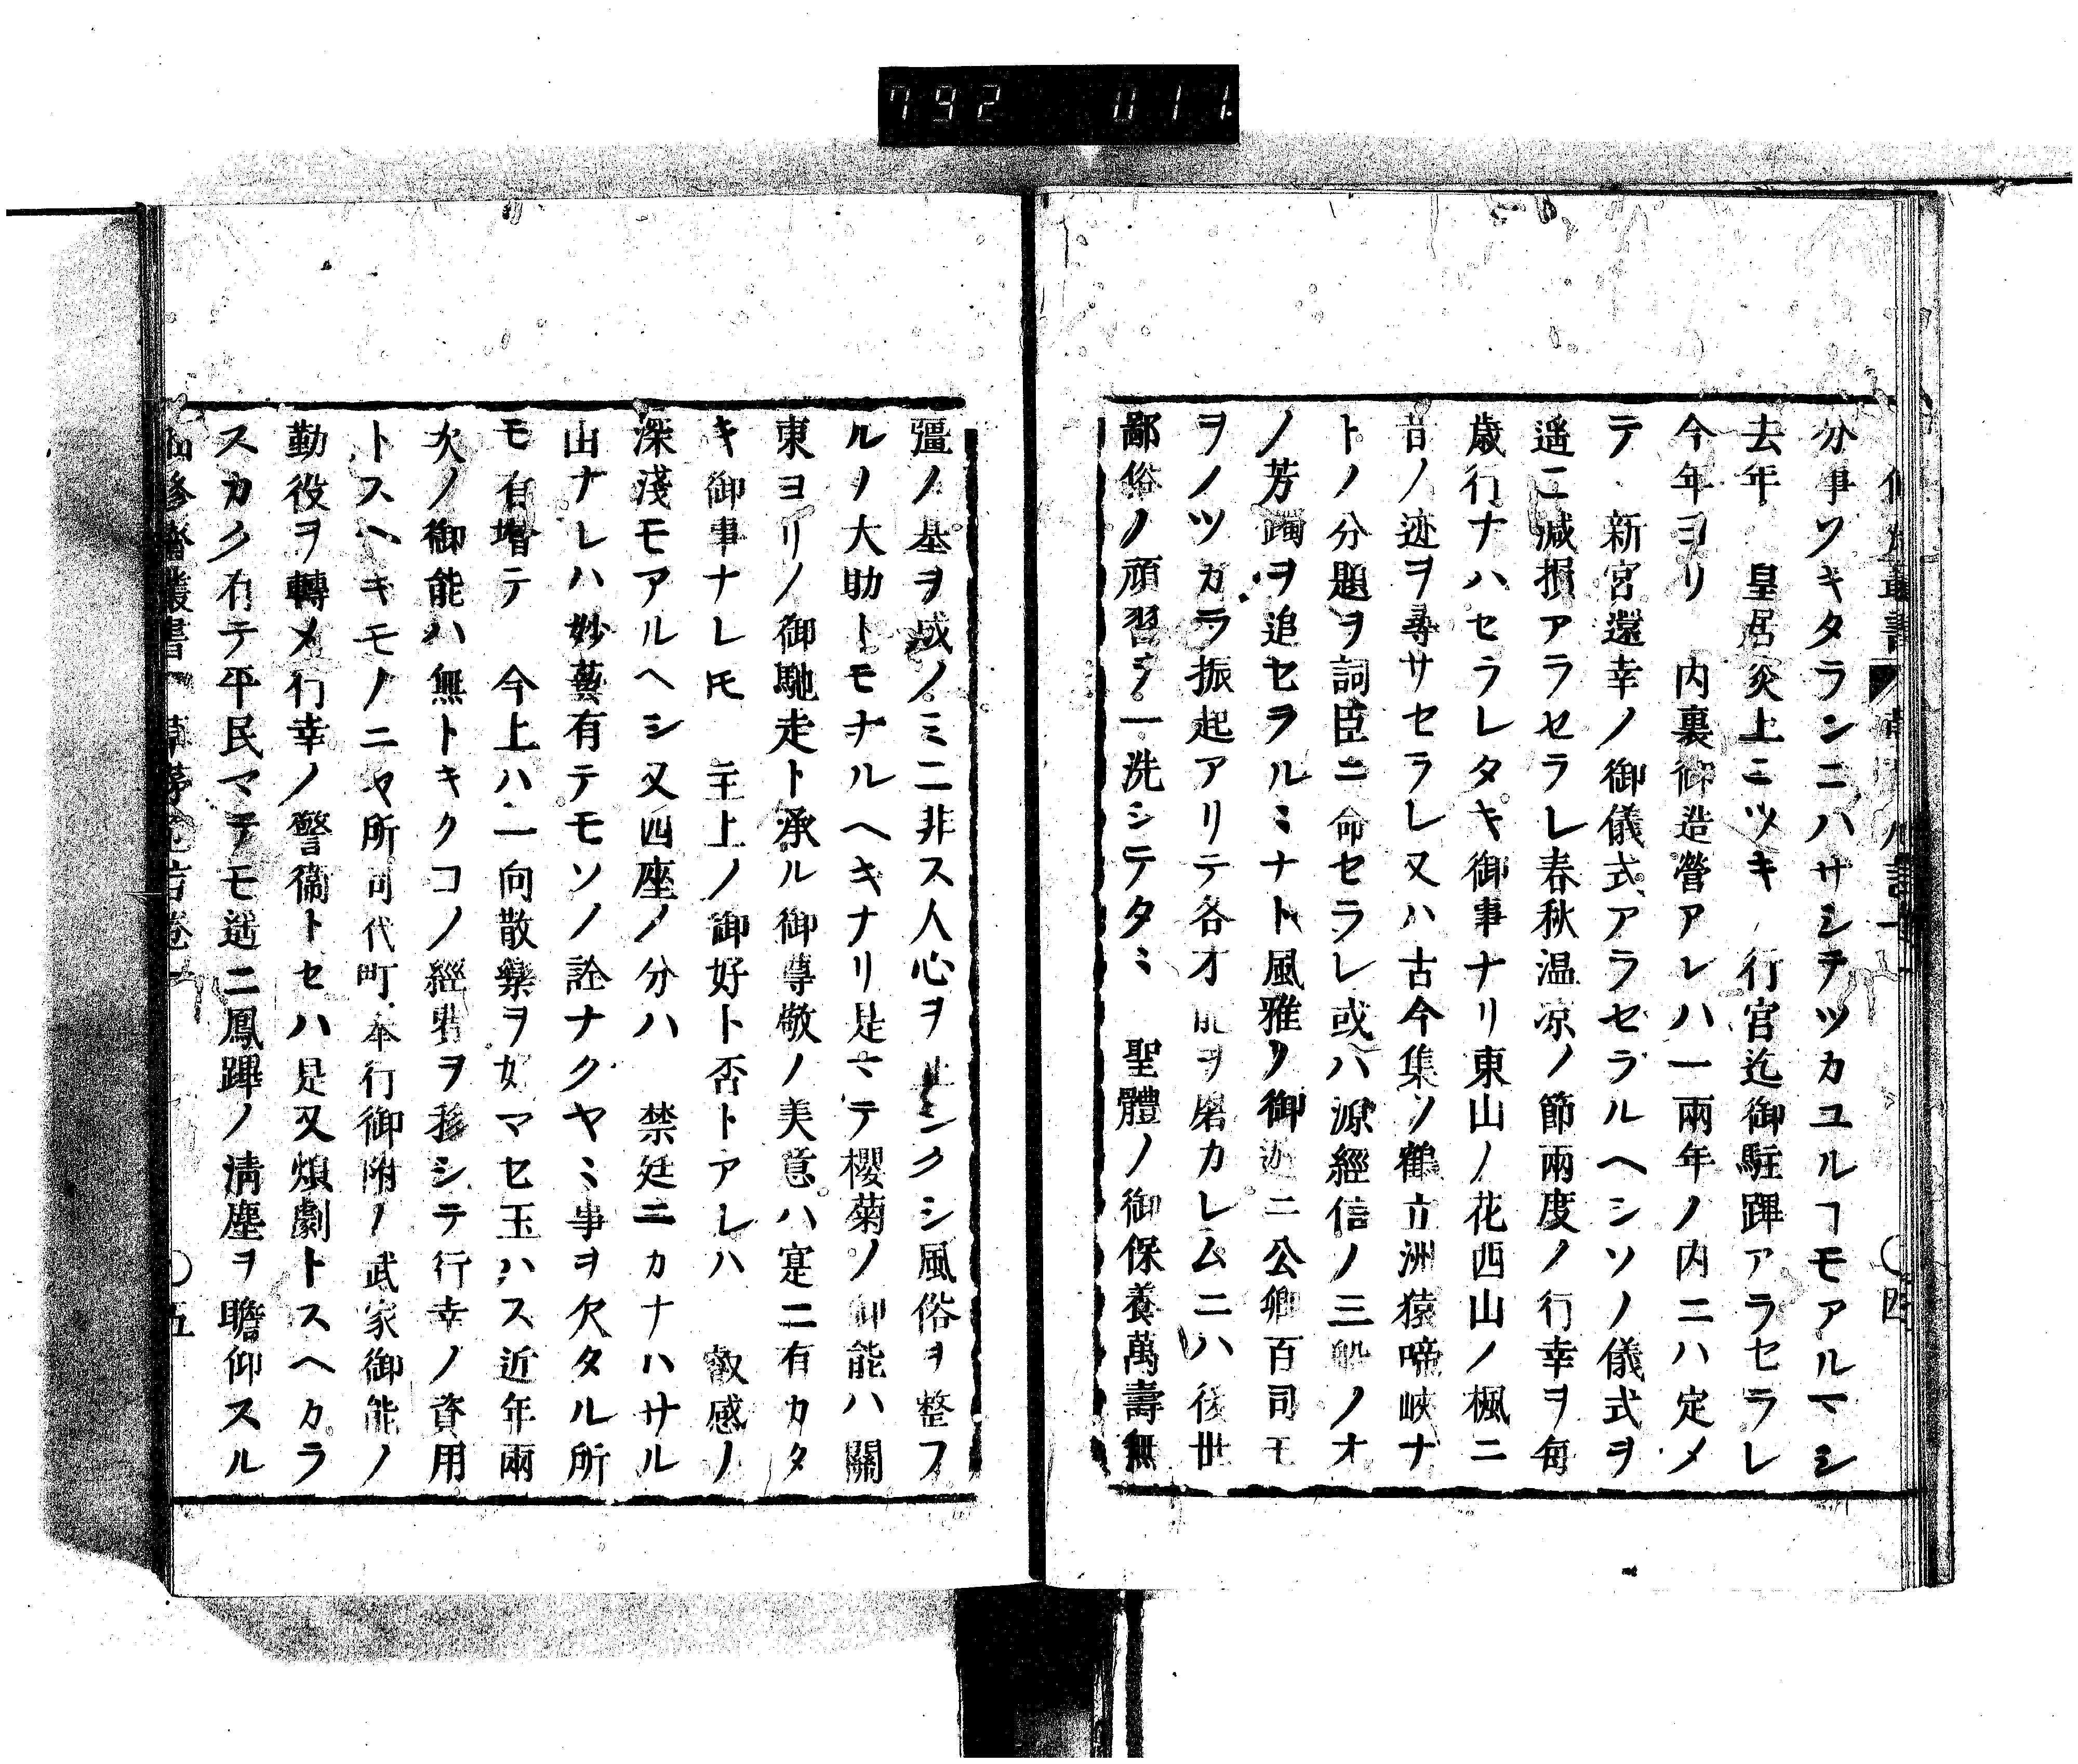 792 011
分事ツキタランニハサシテツカユルヿモアルマシ
去年 皇居炎上ニツキ 行宮迄御駐蹕アラセラレ
今年ヨリ 内裏御造營アレハ一兩年ノ内ニハ定メ
テ 新宮還幸ノ御儀式アラセラルヘシソノ儀式ヲ
遥ニ減損アラセラレ春秋温凉ノ節兩度ノ行幸ヲ毎
歳行ナハセラレタキ御事ナリ東山ノ花西山ノ楓ニ
昔ノ迹ヲ尋サセラレ又ハ古今集ソ鶴立洲猿啼峽ナ
トノ分題ヲ詞臣ニ命セラレ或ハ源經信ノ三船ノオ
ノ芳躅ヲ追セラルミナト風雅ノ御 ニ公卿百司モ
ヲノツカラ振起アリテ各才能ヲ磨カレムニハ後世
鄙俗ノ頑習ミナ一洗シテタミ 聖體ノ御保養萬壽無
疆ノ基ヲ成ノミニ非ス人心ヲ正シクシ風俗ヲ整フ
ルノ大助トモナルヘキナリ是マテ櫻菊ノ御能ハ關
東ヨリノ御馳走ト承ル御尊敬ノ美意ハ寔ニ有カタ
キ御事ナレ𪜈 主上ノ御好ト否トアレハ 叡感ノ
深淺モアルヘシ又四座ノ分ハ 禁廷ニカナハサル
由ナレハ妙藝有テモソノ詮ナクヤミ事ヲ欠タル所
モ有增テ 今上ハ一向散樂ヲ好マセ玉ハス近年兩
次ノ御能ハ無トキクコノ經費ヲ移シテ行幸ノ資用
トスヘキモノニヤ所司代町奉行御附ノ武家御能ノ
勤役ヲ轉メ行幸ノ警衞トセハ是又煩劇トスヘカラ
スカク有テ平民マテモ遥ニ鳳蹕ノ淸塵ヲ瞻仰スル
五